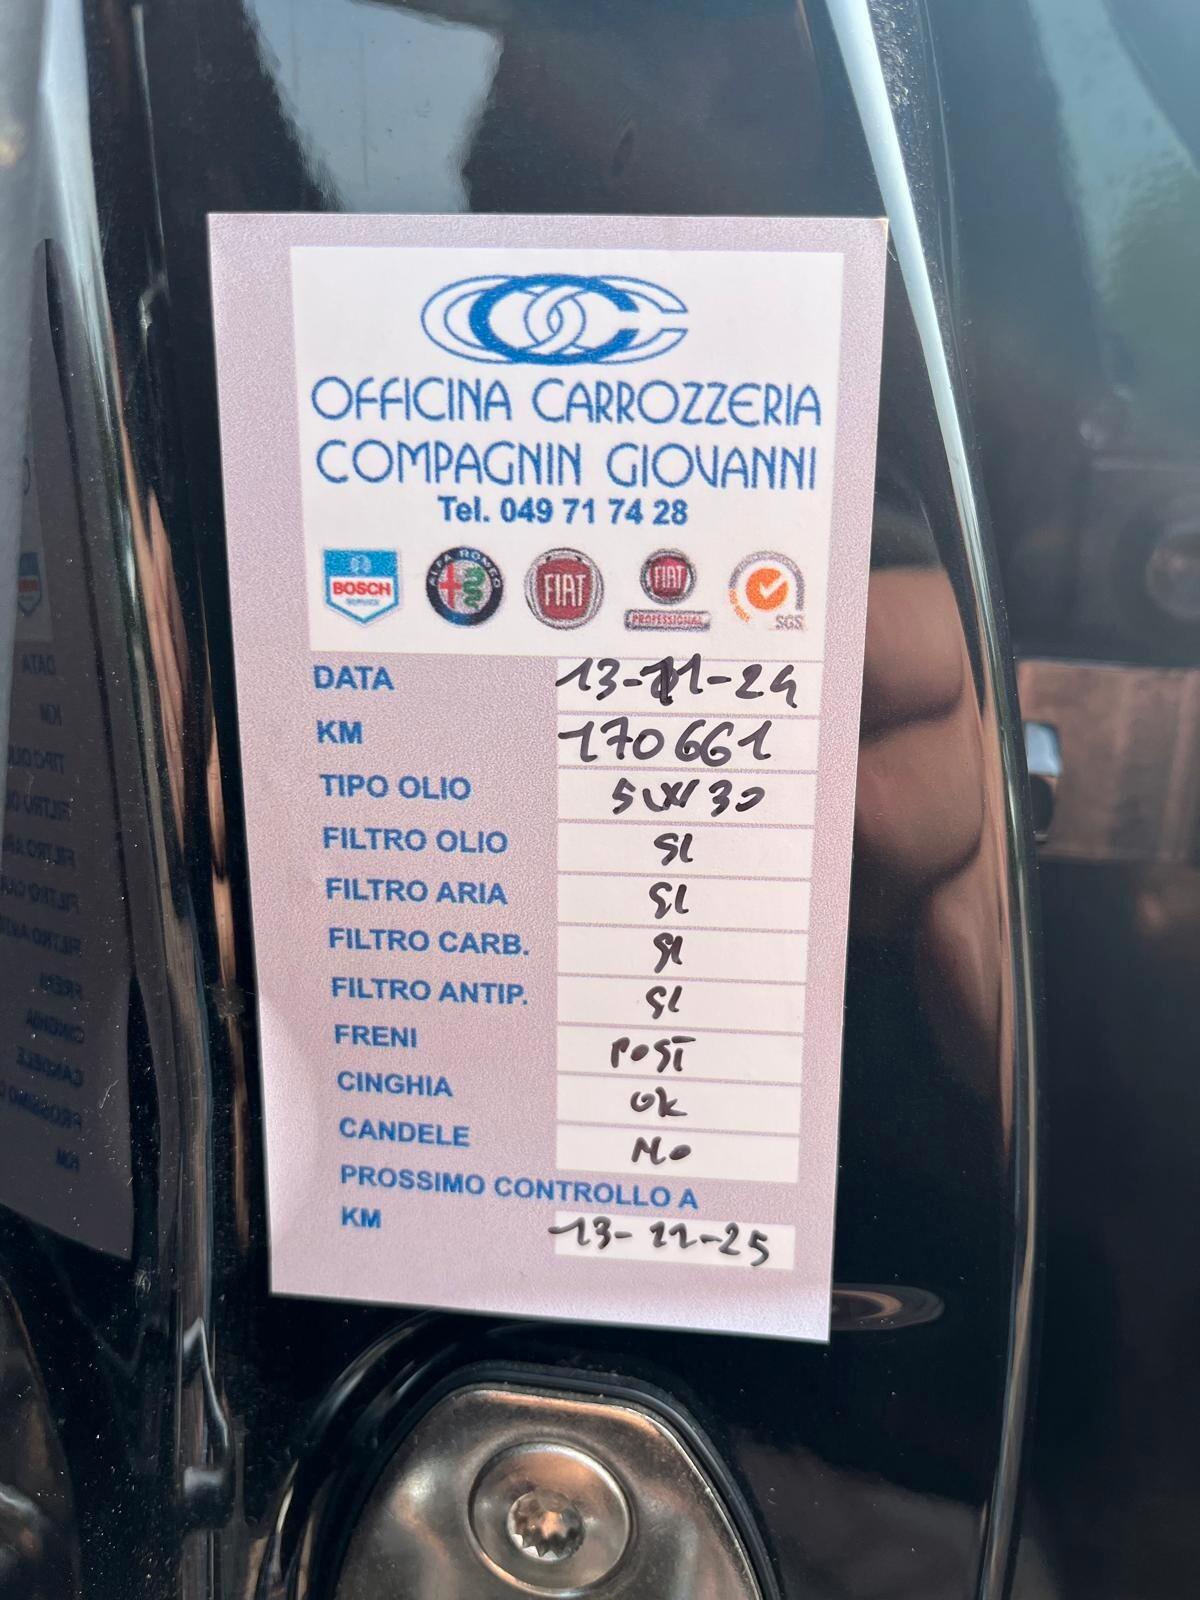 OFFICINA CARROZZERIA
COMPAGNIN GIOVANNI
Tel. 049 71 74 28
BOSCH SERVICE ALFA ROMEO FIAT FIAT PROFESSIONAL ISO 9001 SGS
DATA 13-11-24
KM 170661
TIPO OLIO 5W30
FILTRO OLIO SI
FILTRO ARIA SI
FILTRO CARB. SI
FILTRO ANTIP. SI
FRENI POST
CINGHIA OK
CANDELE NO
PROSSIMO CONTROLLO A
KM 13-11-25